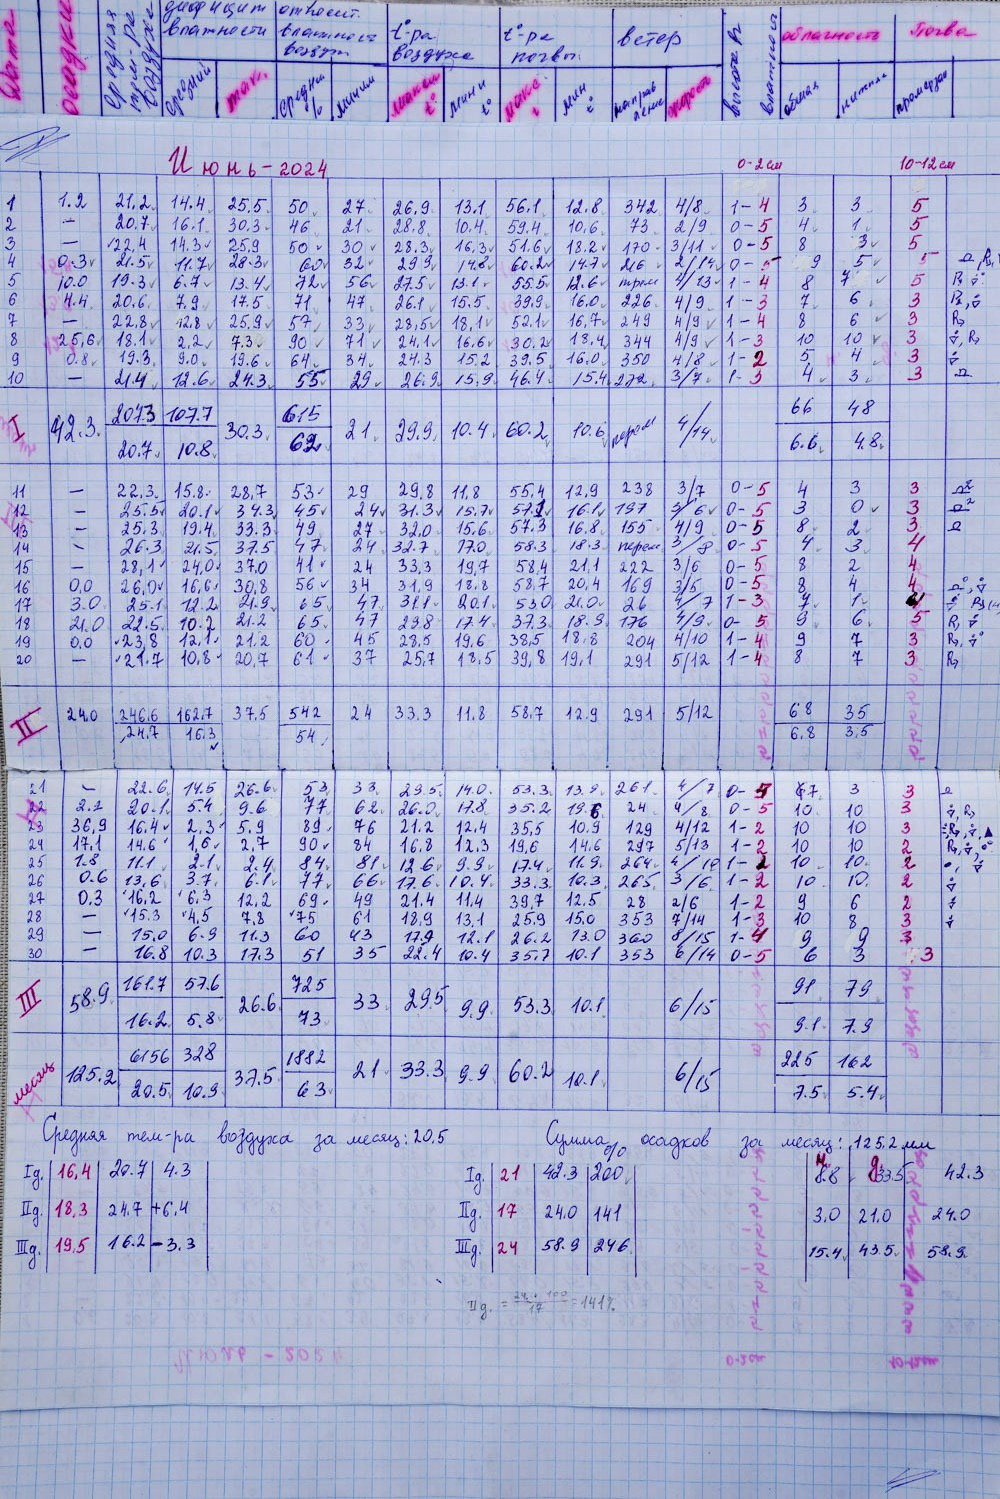 Дата осадки средняя тем-ра воздуха дефицит влажности относит. влажность воздух. t°-ра воздуха t°-ра почвы ветер облачность Почва
средний макс. средн % миним максим t° мини t° макс t° мин t° направление скорость общая нижняя
Июнь-2024 0-2см 10-12см
1 1.2 21.2 14.4 25.5 50 27 26.9 13.1 56.1 12.8 342 4/8 1-4 3 3 5
2 — 20.7 16.1 30.3 46 21 28.8 10.4 59.4 10.6 73 2/9 0-5 4 1 5
3 — 22.4 14.3 25.9 50 30 28.3 16.3 51.6 18.2 170 3/11 0-5 8 3 5
4 0.3 21.5 11.7 28.3 60 32 29.9 14.8 60.2 14.7 216 2/14 0-5 9 5 5
5 10.0 19.3 6.7 13.4 72 56 27.5 13.1 55.5 12.6 4/13 1-4 8 7 5
6 4.4 20.6 7.9 17.5 71 47 26.1 15.5 39.9 16.0 226 4/9 1-3 7 6 3
7 — 22.8 12.8 25.9 57 33 28.5 18.1 52.1 16.7 249 4/9 1-4 8 6 3
8 25.6 18.1 2.2 7.3 90 71 24.1 16.6 30.2 18.4 344 4/9 1-3 10 10 3
9 0.8 19.3 9.0 19.6 64 34 24.3 15.2 39.5 16.0 350 4/8 1-2 5 4 3
10 — 21.4 12.6 24.3 55 29 26.9 15.9 46.4 15.4 272 3/7 1-3 4 3 3
I 42.3 207.3 107.7 30.3 615 21 29.9 10.4 60.2 10.6 4/14 66 48
20.7 10.8 62 6.6 4.8
11 — 22.3 15.8 28.7 53 29 29.8 11.8 55.4 12.9 238 3/7 0-5 4 3 3
12 — 25.5 20.1 34.3 45 24 31.3 15.7 57.2 16.1 197 3/6 0-5 3 0 3
13 — 25.3 19.4 33.3 49 27 32.0 15.6 57.3 16.8 155 4/9 0-5 8 2 3
14 — 26.3 21.5 37.5 47 24 32.7 17.0 58.3 18.3 перем 3/8 0-5 4 3 4
15 — 28.1 24.0 37.0 41 24 33.3 19.7 58.4 21.1 222 3/6 0-5 8 2 4
16 0.0 26.0 16.6 30.8 56 34 31.9 18.8 58.7 20.4 169 3/5 0-5 8 4 4
17 3.0 25.1 12.2 21.9 65 47 31.1 20.1 53.0 21.0 26 4/7 1-3 7 1 4
18 21.0 22.5 10.2 21.2 65 47 29.8 17.4 37.3 18.9 176 4/9 0-5 9 6 5
19 0.0 23.8 12.1 21.2 60 45 28.5 19.6 38.5 18.8 204 4/10 1-4 9 7 3
20 — 21.7 10.8 20.7 61 37 25.7 18.5 39.8 19.1 291 5/12 1-4 8 7 3
II 24.0 246.6 162.7 37.5 542 24 33.3 11.8 58.7 12.9 291 5/12 68 35
24.7 16.3 54 6.8 3.5
21 — 22.6 14.5 26.6 53 33 29.5 14.0 53.3 13.9 261 4/7 7 3 3
22 2.2 20.1 5.4 9.6 77 62 26.0 17.8 35.2 19.6 24 4/8 0-5 10 10 3
23 36.9 16.4 2.3 5.9 89 76 21.2 12.4 35.5 10.9 129 4/12 1-2 10 10 3
24 17.1 14.6 1.6 2.7 90 84 16.8 12.3 19.6 14.6 297 5/13 1-2 10 10 2
25 1.8 11.1 2.1 2.4 84 81 12.6 9.9 17.4 11.9 264 4/10 1-2 10 10 2
26 0.6 13.6 3.7 6.1 77 66 17.6 10.4 33.3 10.3 265 3/6 1-2 10 10 2
27 0.3 16.2 6.3 12.2 69 49 21.4 11.4 39.7 12.5 28 2/6 1-2 9 6 2
28 — 15.3 4.5 7.8 75 61 18.9 13.1 25.9 15.0 353 7/14 1-3 10 8 3
29 — 15.0 6.9 11.3 60 43 17.9 12.1 26.2 13.0 360 8/15 1-4 9 9 3
30 — 16.8 10.3 17.3 51 35 22.4 10.4 35.7 10.1 353 6/14 0-5 6 3 3
III 58.9 161.7 57.6 26.6 725 33 29.5 9.9 53.3 10.1 6/15 91 79
16.2 5.8 73 9.1 7.9
месяц 125.2 6156 328 37.5 1882 21 33.3 9.9 60.2 10.1 6/15 225 162
20.5 10.9 63 7.5 5.4
Средняя тем-ра воздуха за месяц: 20,5 Сумма осадков за месяц: 125.2 мм
%
Iд. 16,4 20.7 4.3 Iд. 21 42.3 200 8.8 33.5 42.3
IIд. 18,3 24.7 +6,4 IIд. 17 24.0 141 3.0 21.0 24.0
IIIд. 19,5 16.2 -3.3 IIIд. 24 58.9 246 15.4 43.5 58.9
IIд. = 24 · 100 / 17 = 141%
Июль - 2024 0-2см 10-12см